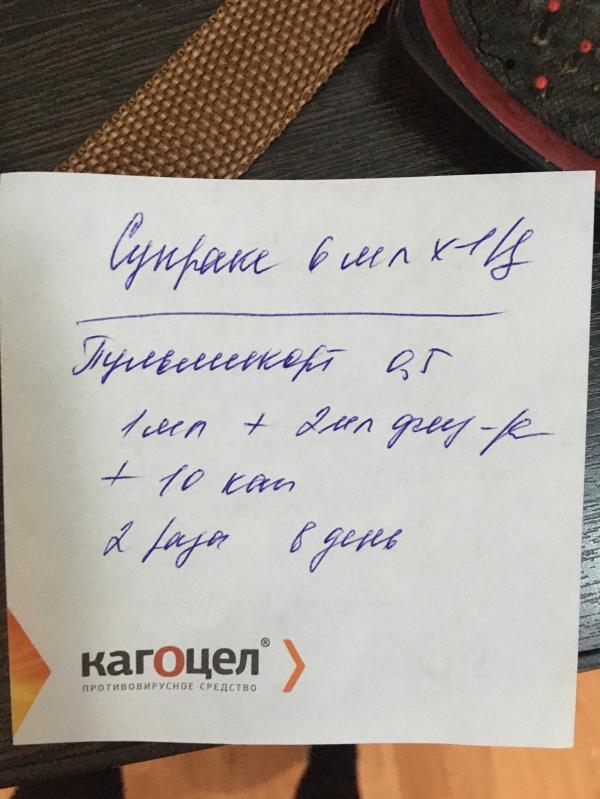 Супракс 6 мл х 1/д
Пульмикорт 0,5
1 мл + 2 мл физ-р
+ 10 кап
2 раза в день
кагоцел®
ПРОТИВОВИРУСНОЕ СРЕДСТВО